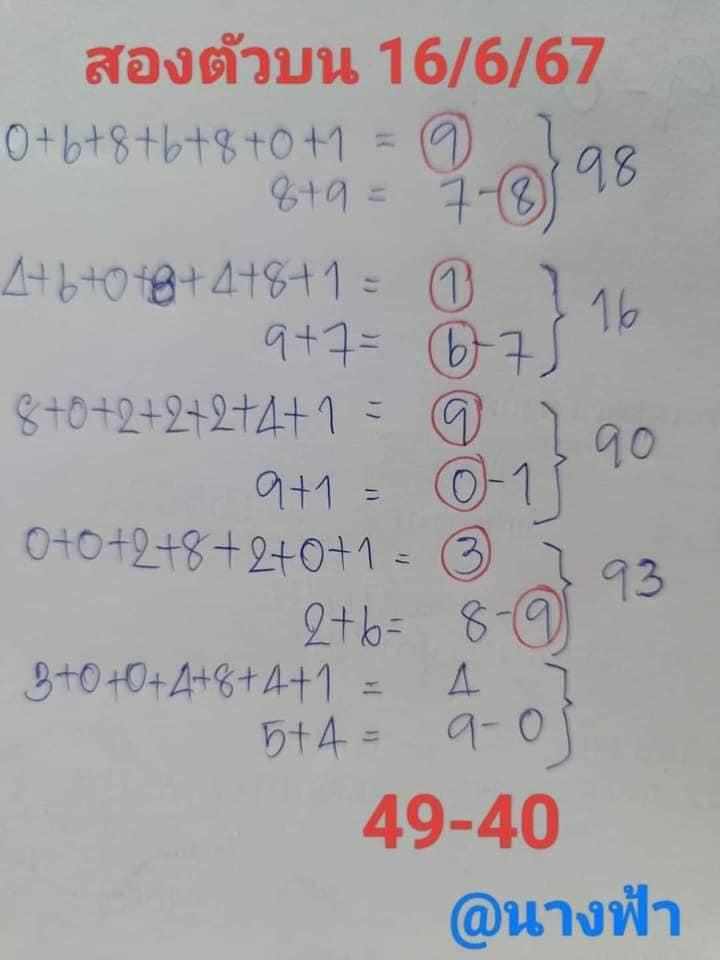 สองตัวบน 16/6/67
0+6+8+6+8+0+1 = 9
98
8+9 = 7-8
4+6+0+8+4+8+1 = 1
16
9+7= 6-7
8+0+2+2+2+4+1 = 9
90
9+1 = 0-1
0+0+2+8+2+0+1 = 3
93
2+6= 8-9
3+0+0+4+8+4+1 = 4
5+4 = 9-0
49-40
@นางฟ้า